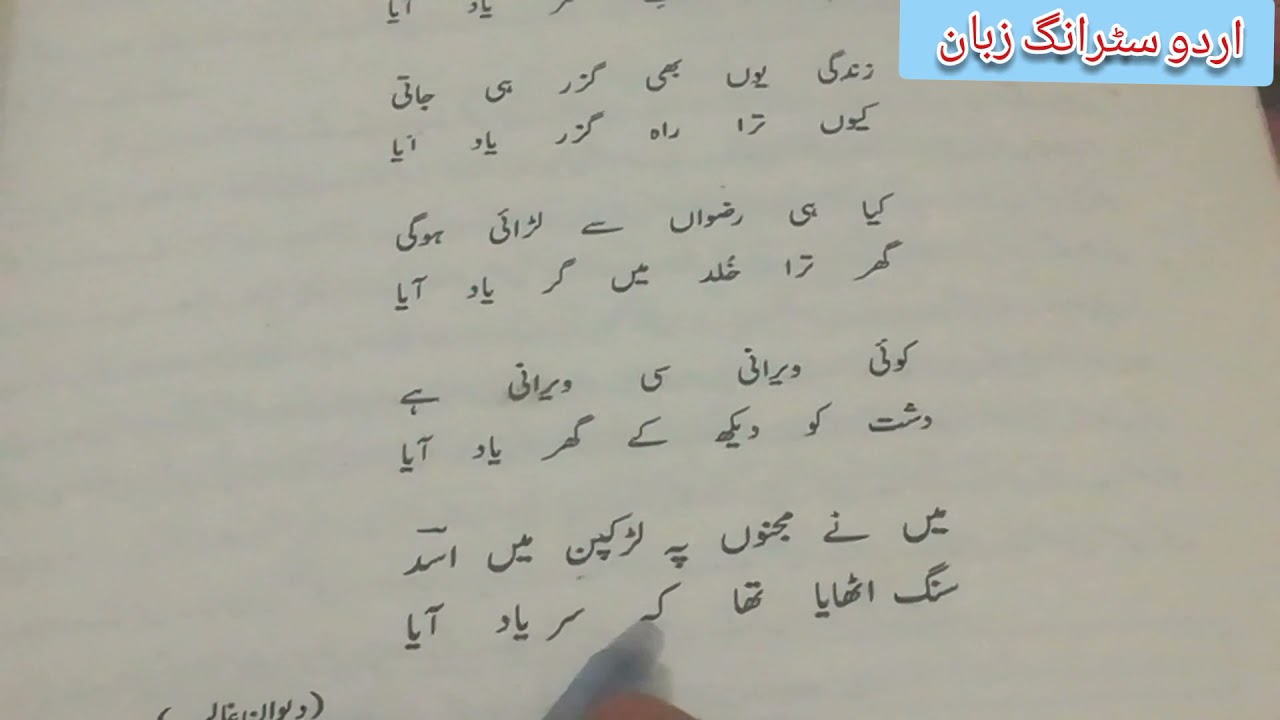 اردو سٹرانگ زبان
یاد آیا
زندگی یوں بھی گزر ہی جاتی
کیوں ترا راہ گزر یاد آیا
کیا ہی رضواں سے لڑائی ہوگی
گھر ترا خُلد میں گر یاد آیا
کوئی ویرانی سی ویرانی ہے
دشت کو دیکھ کے گھر یاد آیا
میں نے مجنوں پہ لڑکپن میں اسدؔ
سنگ اٹھایا تھا کہ سر یاد آیا
(دیوانِ غالب)